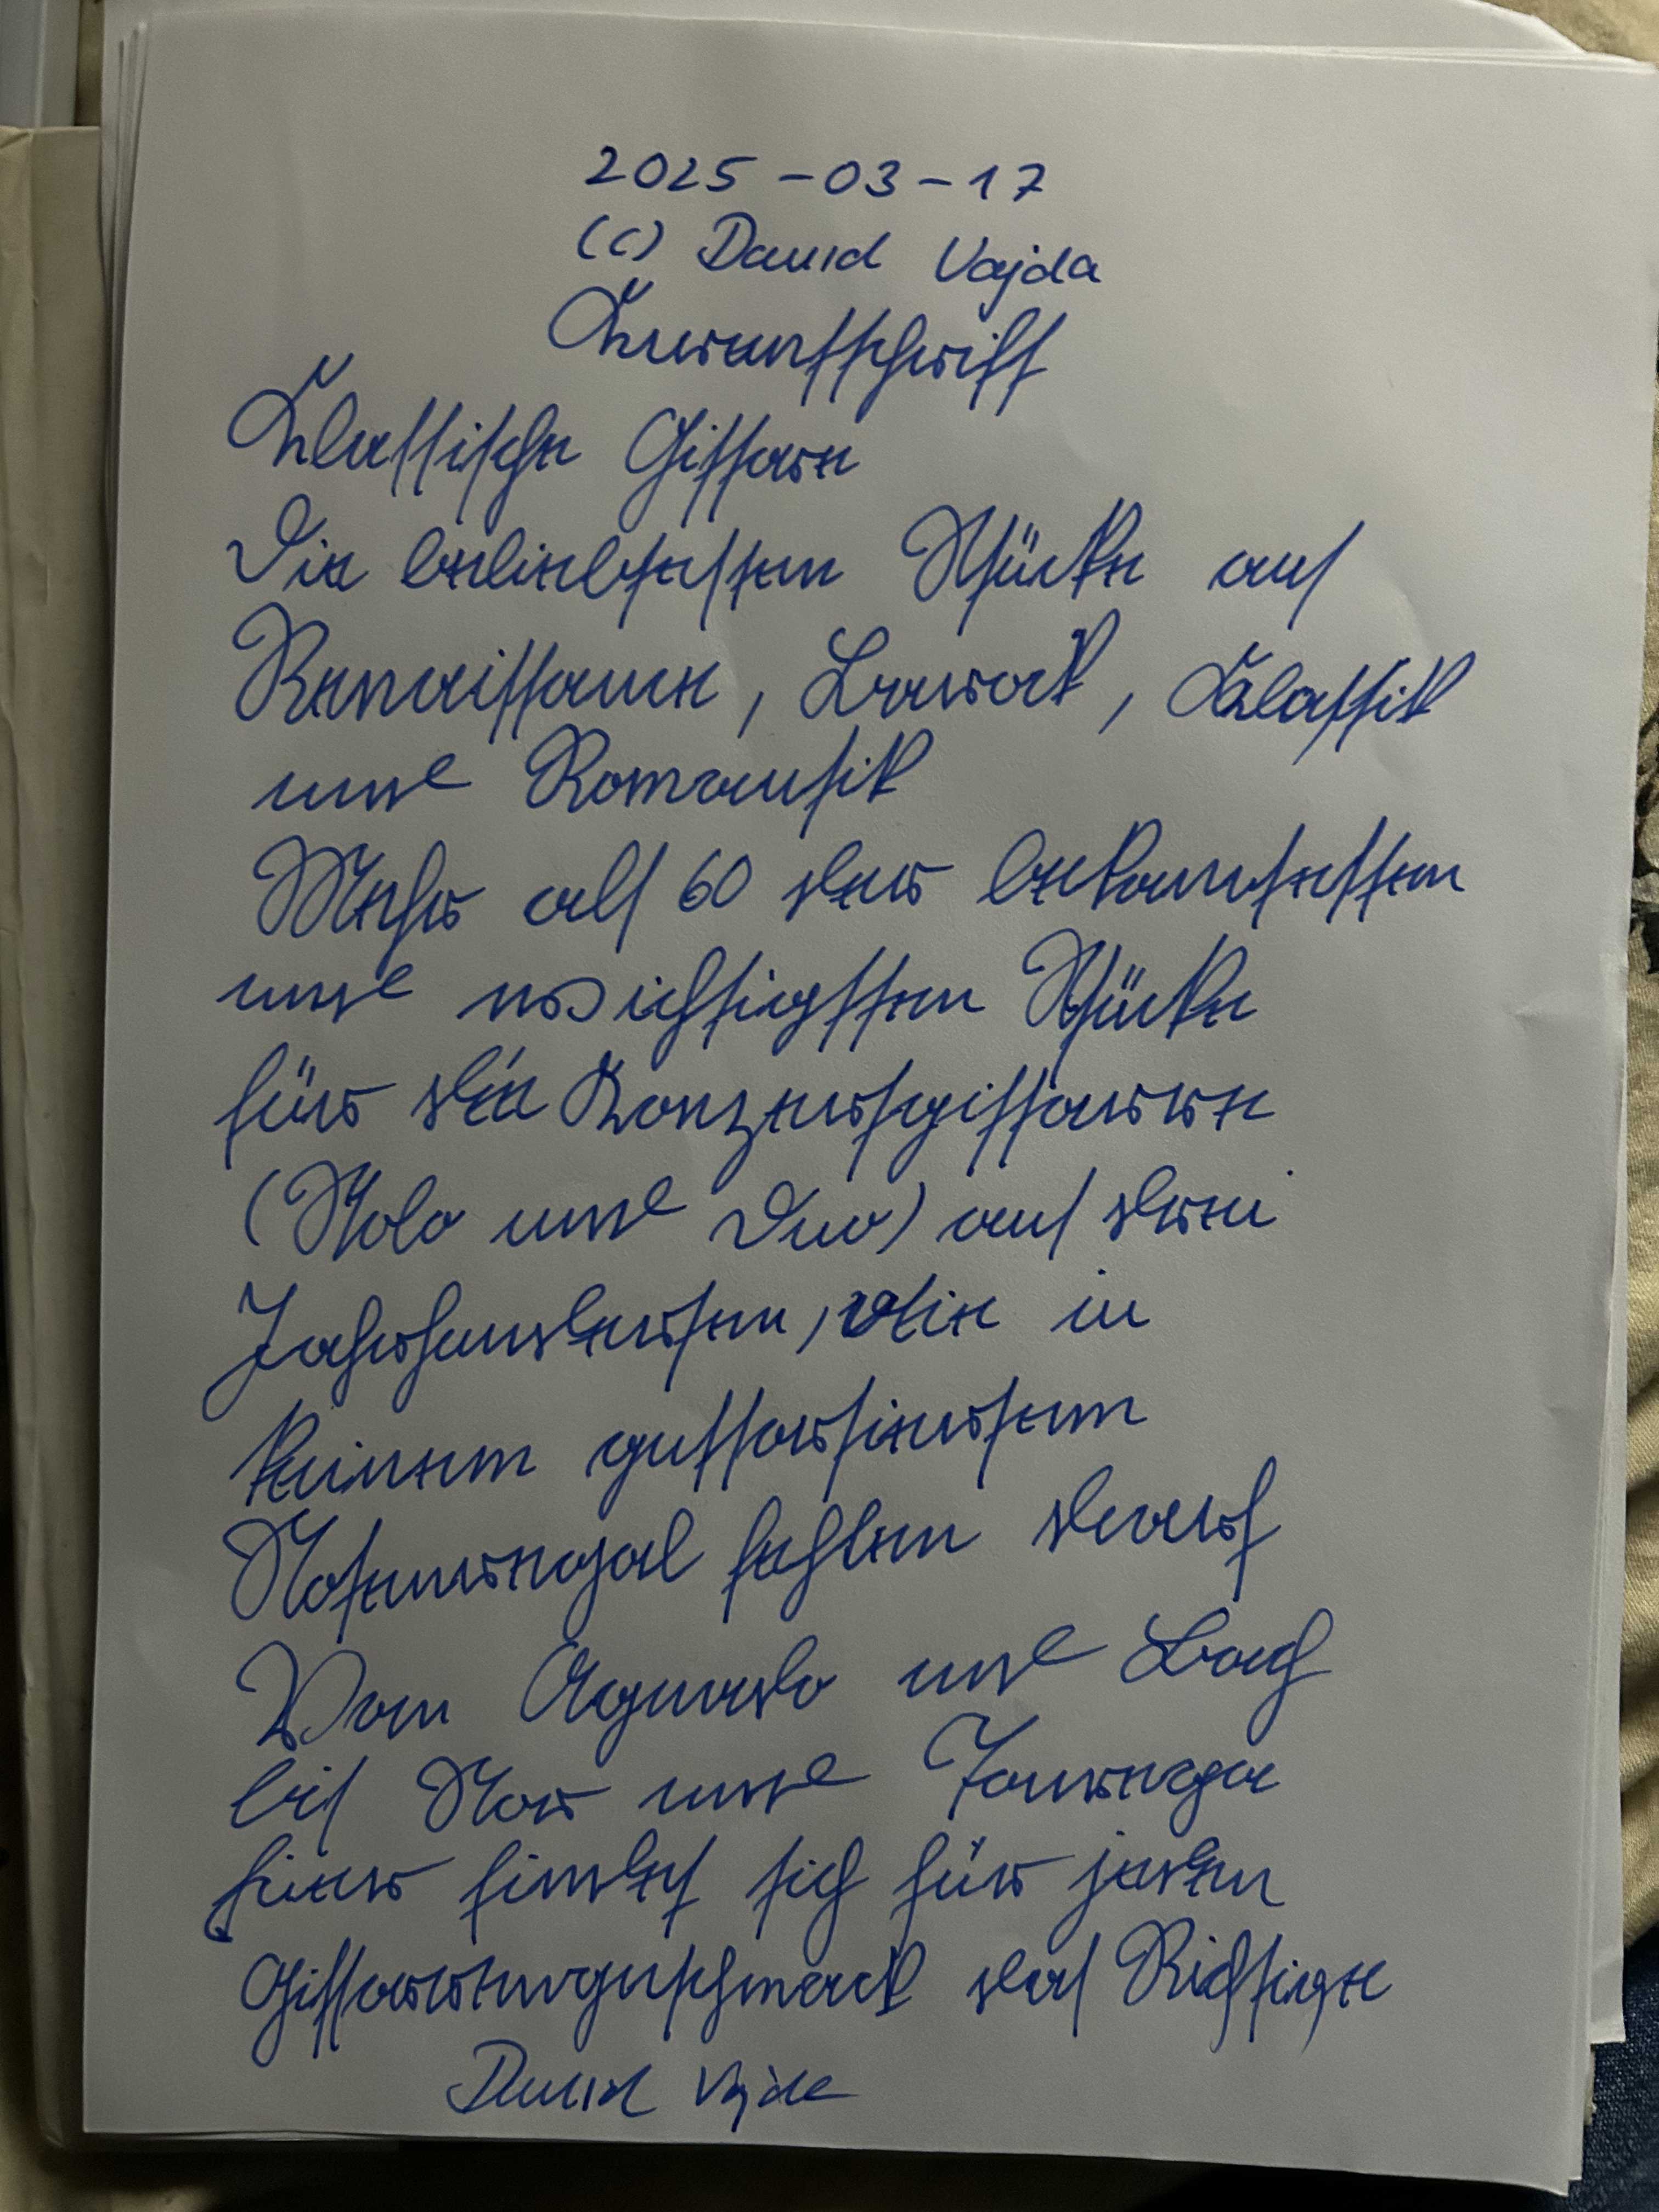 2025-03-17
(C) David Vajda
Kurrentschrift
Klassische Gitarre
Die beliebtesten Stücke aus
Renaissance, Barock, Klassik
und Romantik
Mehr als 60 der bekanntesten
und wichtigsten Stücke
für die Konzertgitarre
(Solo und Duo) aus drei
Jahrhunderten, die in
keinem gutsortierten
Notenregal fehlen darf
Von Aguado und Bach
bis Sor und Tárrega
hier findet sich für jeden
Gitarrengeschmack das Richtige
David Vajda